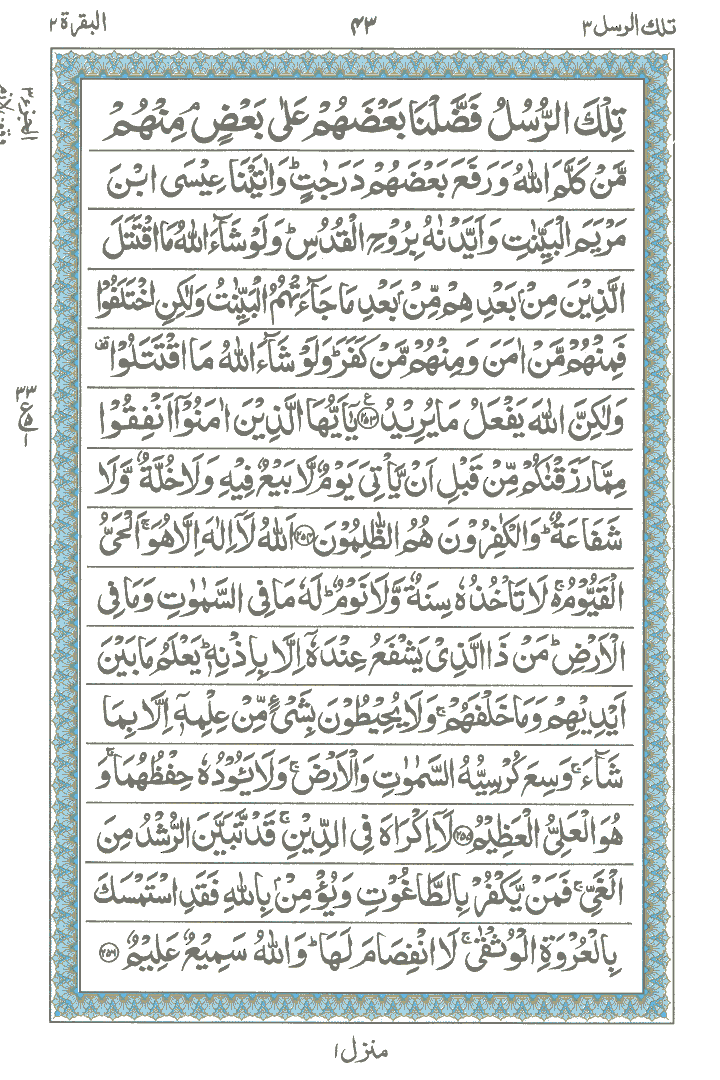 تلك الرسل ٣
٤٣
البقرة ٢
تِلْكَ الرُّسُلُ فَضَّلْنَا بَعْضَهُمْ عَلٰى بَعْضٍ ۘ مِنْهُمْ
مَّنْ كَلَّمَ اللّٰهُ وَرَفَعَ بَعْضَهُمْ دَرَجٰتٍ ؕ وَاٰتَيْنَا عِيْسَى ابْنَ
مَرْيَمَ الْبَيِّنٰتِ وَاَيَّدْنٰهُ بِرُوْحِ الْقُدُسِ ؕ وَلَوْ شَآءَ اللّٰهُ مَا اقْتَتَلَ
الَّذِيْنَ مِنْۢ بَعْدِهِمْ مِّنْۢ بَعْدِ مَا جَآءَتْهُمُ الْبَيِّنٰتُ وَلٰكِنِ اخْتَلَفُوْا
فَمِنْهُمْ مَّنْ اٰمَنَ وَمِنْهُمْ مَّنْ كَفَرَ ؕ وَلَوْ شَآءَ اللّٰهُ مَا اقْتَتَلُوْا ۟
وَلٰكِنَّ اللّٰهَ يَفْعَلُ مَا يُرِيْدُ ﴿۲۵۳﴾ يٰٓاَيُّهَا الَّذِيْنَ اٰمَنُوْۤا اَنْفِقُوْا
مِمَّا رَزَقْنٰكُمْ مِّنْ قَبْلِ اَنْ يَّاْتِيَ يَوْمٌ لَّا بَيْعٌ فِيْهِ وَلَا خُلَّةٌ وَّلَا
شَفَاعَةٌ ؕ وَالْكٰفِرُوْنَ هُمُ الظّٰلِمُوْنَ ﴿۲۵۴﴾ اَللّٰهُ لَاۤ اِلٰهَ اِلَّا هُوَ ۚ اَلْحَيُّ
الْقَيُّوْمُ ۚ لَا تَاْخُذُهٗ سِنَةٌ وَّلَا نَوْمٌ ؕ لَهٗ مَا فِي السَّمٰوٰتِ وَمَا فِي
الْاَرْضِ ؕ مَنْ ذَا الَّذِيْ يَشْفَعُ عِنْدَهٗۤ اِلَّا بِاِذْنِهٖ ؕ يَعْلَمُ مَا بَيْنَ
اَيْدِيْهِمْ وَمَا خَلْفَهُمْ ۚ وَلَا يُحِيْطُوْنَ بِشَيْءٍ مِّنْ عِلْمِهٖۤ اِلَّا بِمَا
شَآءَ ۚ وَسِعَ كُرْسِيُّهُ السَّمٰوٰتِ وَالْاَرْضَ ۚ وَلَا يَـُٔوْدُهٗ حِفْظُهُمَا ۚ وَ
هُوَ الْعَلِيُّ الْعَظِيْمُ ﴿۲۵۵﴾ لَاۤ اِكْرَاهَ فِي الدِّيْنِ ۚ قَدْ تَّبَيَّنَ الرُّشْدُ مِنَ
الْغَيِّ ۚ فَمَنْ يَّكْفُرْ بِالطَّاغُوْتِ وَيُؤْمِنْۢ بِاللّٰهِ فَقَدِ اسْتَمْسَكَ
بِالْعُرْوَةِ الْوُثْقٰى ۚ لَا انْفِصَامَ لَهَا ؕ وَاللّٰهُ سَمِيْعٌ عَلِيْمٌ ﴿۲۵۶﴾
منزل ١